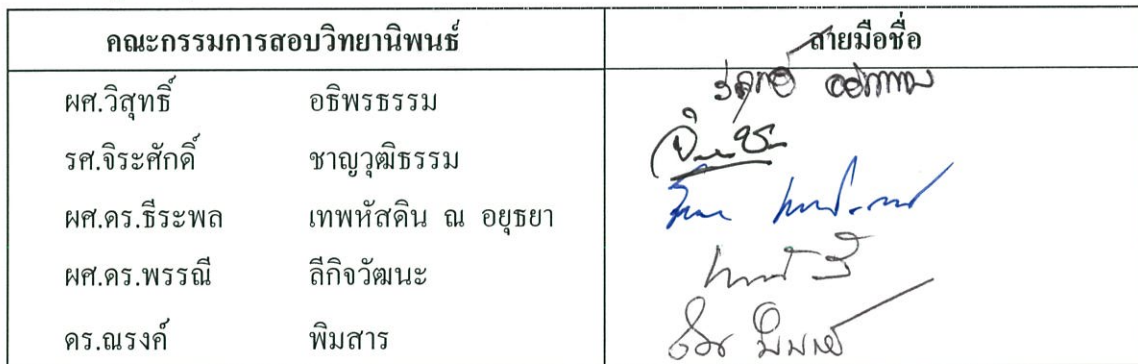 คณะกรรมการสอบวิทยานิพนธ์ ลายมือชื่อ
ผศ.วิสุทธิ์ อธิพรธรรม
รศ.จิระศักดิ์ ชาญวุฒิธรรม
ผศ.ดร.ธีระพล เทพหัสดิน ณ อยุธยา
ผศ.ดร.พรรณี ลีกิจวัฒนะ
ดร.ณรงค์ พิมสาร